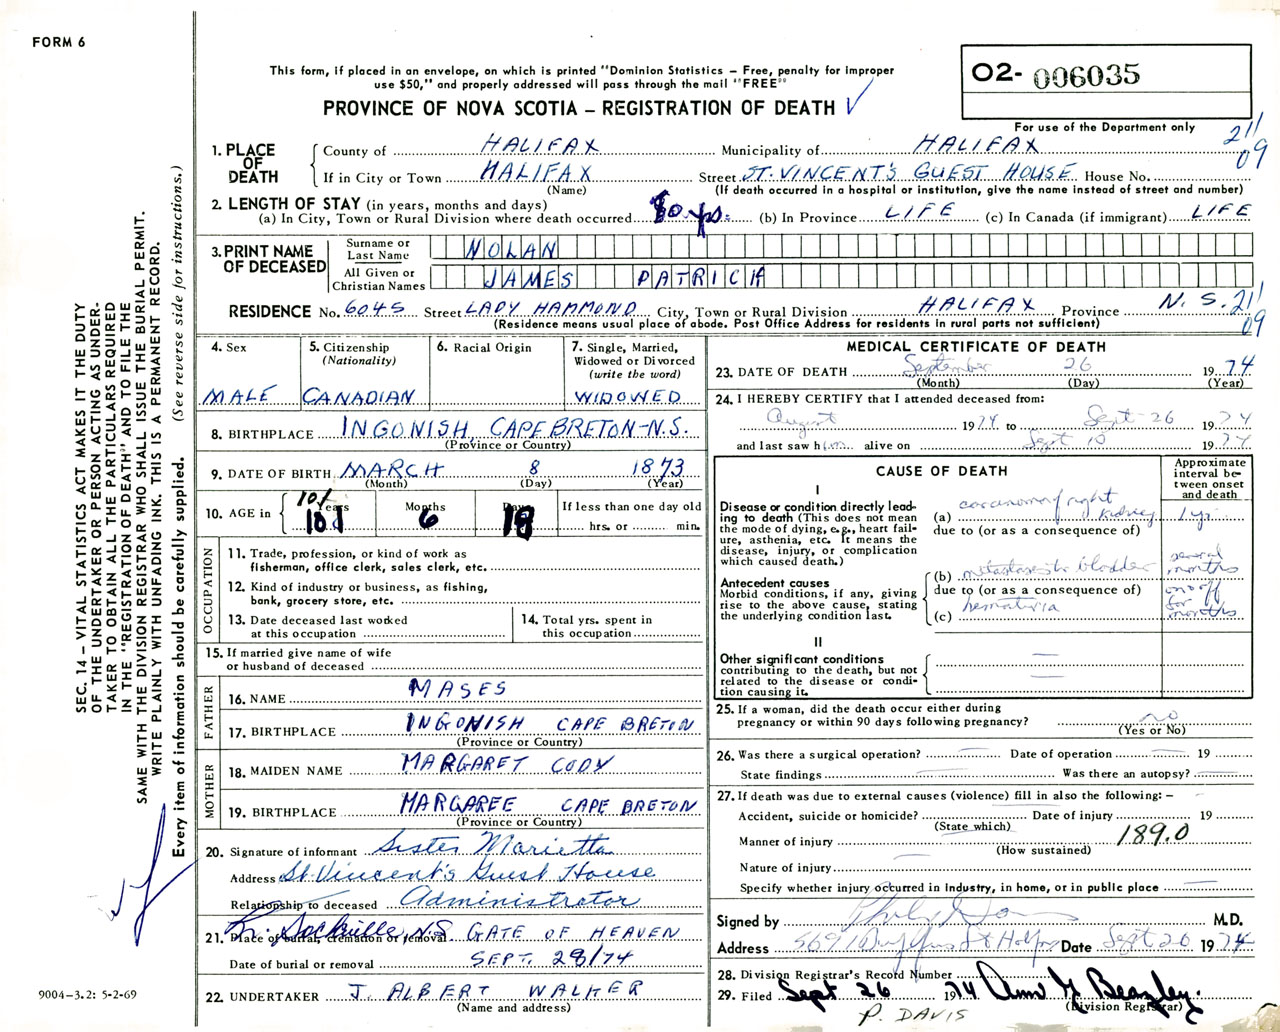 FORM 6
This form, if placed in an envelope, on which is printed "Dominion Statistics – Free, penalty for improper
use $50," and properly addressed will pass through the mail "FREE"
PROVINCE OF NOVA SCOTIA – REGISTRATION OF DEATH
02- 006035
For use of the Department only
211
09
1. PLACE OF DEATH
County of HALIFAX Municipality of HALIFAX
If in City or Town HALIFAX Street ST. VINCENT'S GUEST HOUSE House No.
(Name) (If death occurred in a hospital or institution, give the name instead of street and number)
2. LENGTH OF STAY (in years, months and days)
(a) In City, Town or Rural Division where death occurred 80 yrs. (b) In Province LIFE (c) In Canada (if immigrant) LIFE
3. PRINT NAME OF DECEASED
Surname or Last Name NOLAN
All Given or Christian Names JAMES PATRICK
RESIDENCE No. 6045 Street LADY HAMMOND City, Town or Rural Division HALIFAX Province N.S. 211
(Residence means usual place of abode. Post Office Address for residents in rural parts not sufficient) 09
4. Sex
MALE
5. Citizenship
(Nationality)
CANADIAN
6. Racial Origin
7. Single, Married,
Widowed or Divorced
(write the word)
WIDOWED
8. BIRTHPLACE INGONISH, CAPE BRETON-N.S.
(Province or Country)
9. DATE OF BIRTH MARCH 8 1873
(Month) (Day) (Year)
10. AGE in
101
Years Months Days If less than one day old
101 6 18 hrs. or min.
OCCUPATION
11. Trade, profession, or kind of work as
fisherman, office clerk, sales clerk, etc.
12. Kind of industry or business, as fishing,
bank, grocery store, etc.
13. Date deceased last worked
at this occupation
14. Total yrs. spent in
this occupation
15. If married give name of wife
or husband of deceased
FATHER
16. NAME MASES
17. BIRTHPLACE INGONISH CAPE BRETON
(Province or Country)
MOTHER
18. MAIDEN NAME MARGARET CODY
19. BIRTHPLACE MARGAREE CAPE BRETON
(Province or Country)
20. Signature of informant Sister Marietta
Address St. Vincent's Guest House
Relationship to deceased Administrator
21. Place of burial, cremation or removal Sackville N.S. GATE OF HEAVEN
Date of burial or removal SEPT. 28/74
22. UNDERTAKER J. ALBERT WALKER
(Name and address)
MEDICAL CERTIFICATE OF DEATH
23. DATE OF DEATH September 26 1974
(Month) (Day) (Year)
24. I HEREBY CERTIFY that I attended deceased from:
August 1974 to Sept 26 1974
and last saw him alive on Sept 10 1974
CAUSE OF DEATH
Approximate
interval be-
tween onset
and death
I
Disease or condition directly lead-
ing to death (This does not mean
the mode of dying, e.g., heart fail-
ure, asthenia, etc. It means the
disease, injury, or complication
which caused death.)
(a) carcinoma of right kidney 1 yr
due to (or as a consequence of)
Antecedent causes
Morbid conditions, if any, giving
rise to the above cause, stating
the underlying condition last.
(b) metastases to bladder several months
due to (or as a consequence of)
(c) hematuria on & off for months
II
Other significant conditions
contributing to the death, but not
related to the disease or condi-
tion causing it.
25. If a woman, did the death occur either during
pregnancy or within 90 days following pregnancy? no
(Yes or No)
26. Was there a surgical operation? Date of operation 19
State findings Was there an autopsy?
27. If death was due to external causes (violence) fill in also the following: –
Accident, suicide or homicide? Date of injury 19
(State which)
Manner of injury 189.0
(How sustained)
Nature of injury
Specify whether injury occurred in industry, in home, or in public place
Signed by M.D.
Address 5691 St Date Sept 26 1974
28. Division Registrar's Record Number
29. Filed Sept 26 1974 Ann G. Beazley.
(Division Registrar)
P. DAVIS
SEC. 14 – VITAL STATISTICS ACT MAKES IT THE DUTY
OF THE UNDERTAKER OR PERSON ACTING AS UNDER-
TAKER TO OBTAIN ALL THE PARTICULARS REQUIRED
IN THE "REGISTRATION OF DEATH" AND TO FILE THE
SAME WITH THE DIVISION REGISTRAR WHO SHALL ISSUE THE BURIAL PERMIT.
WRITE PLAINLY WITH UNFADING INK. THIS IS A PERMANENT RECORD.
Every item of information should be carefully supplied. (See reverse side for instructions.)
9004-3.2: 5-2-69